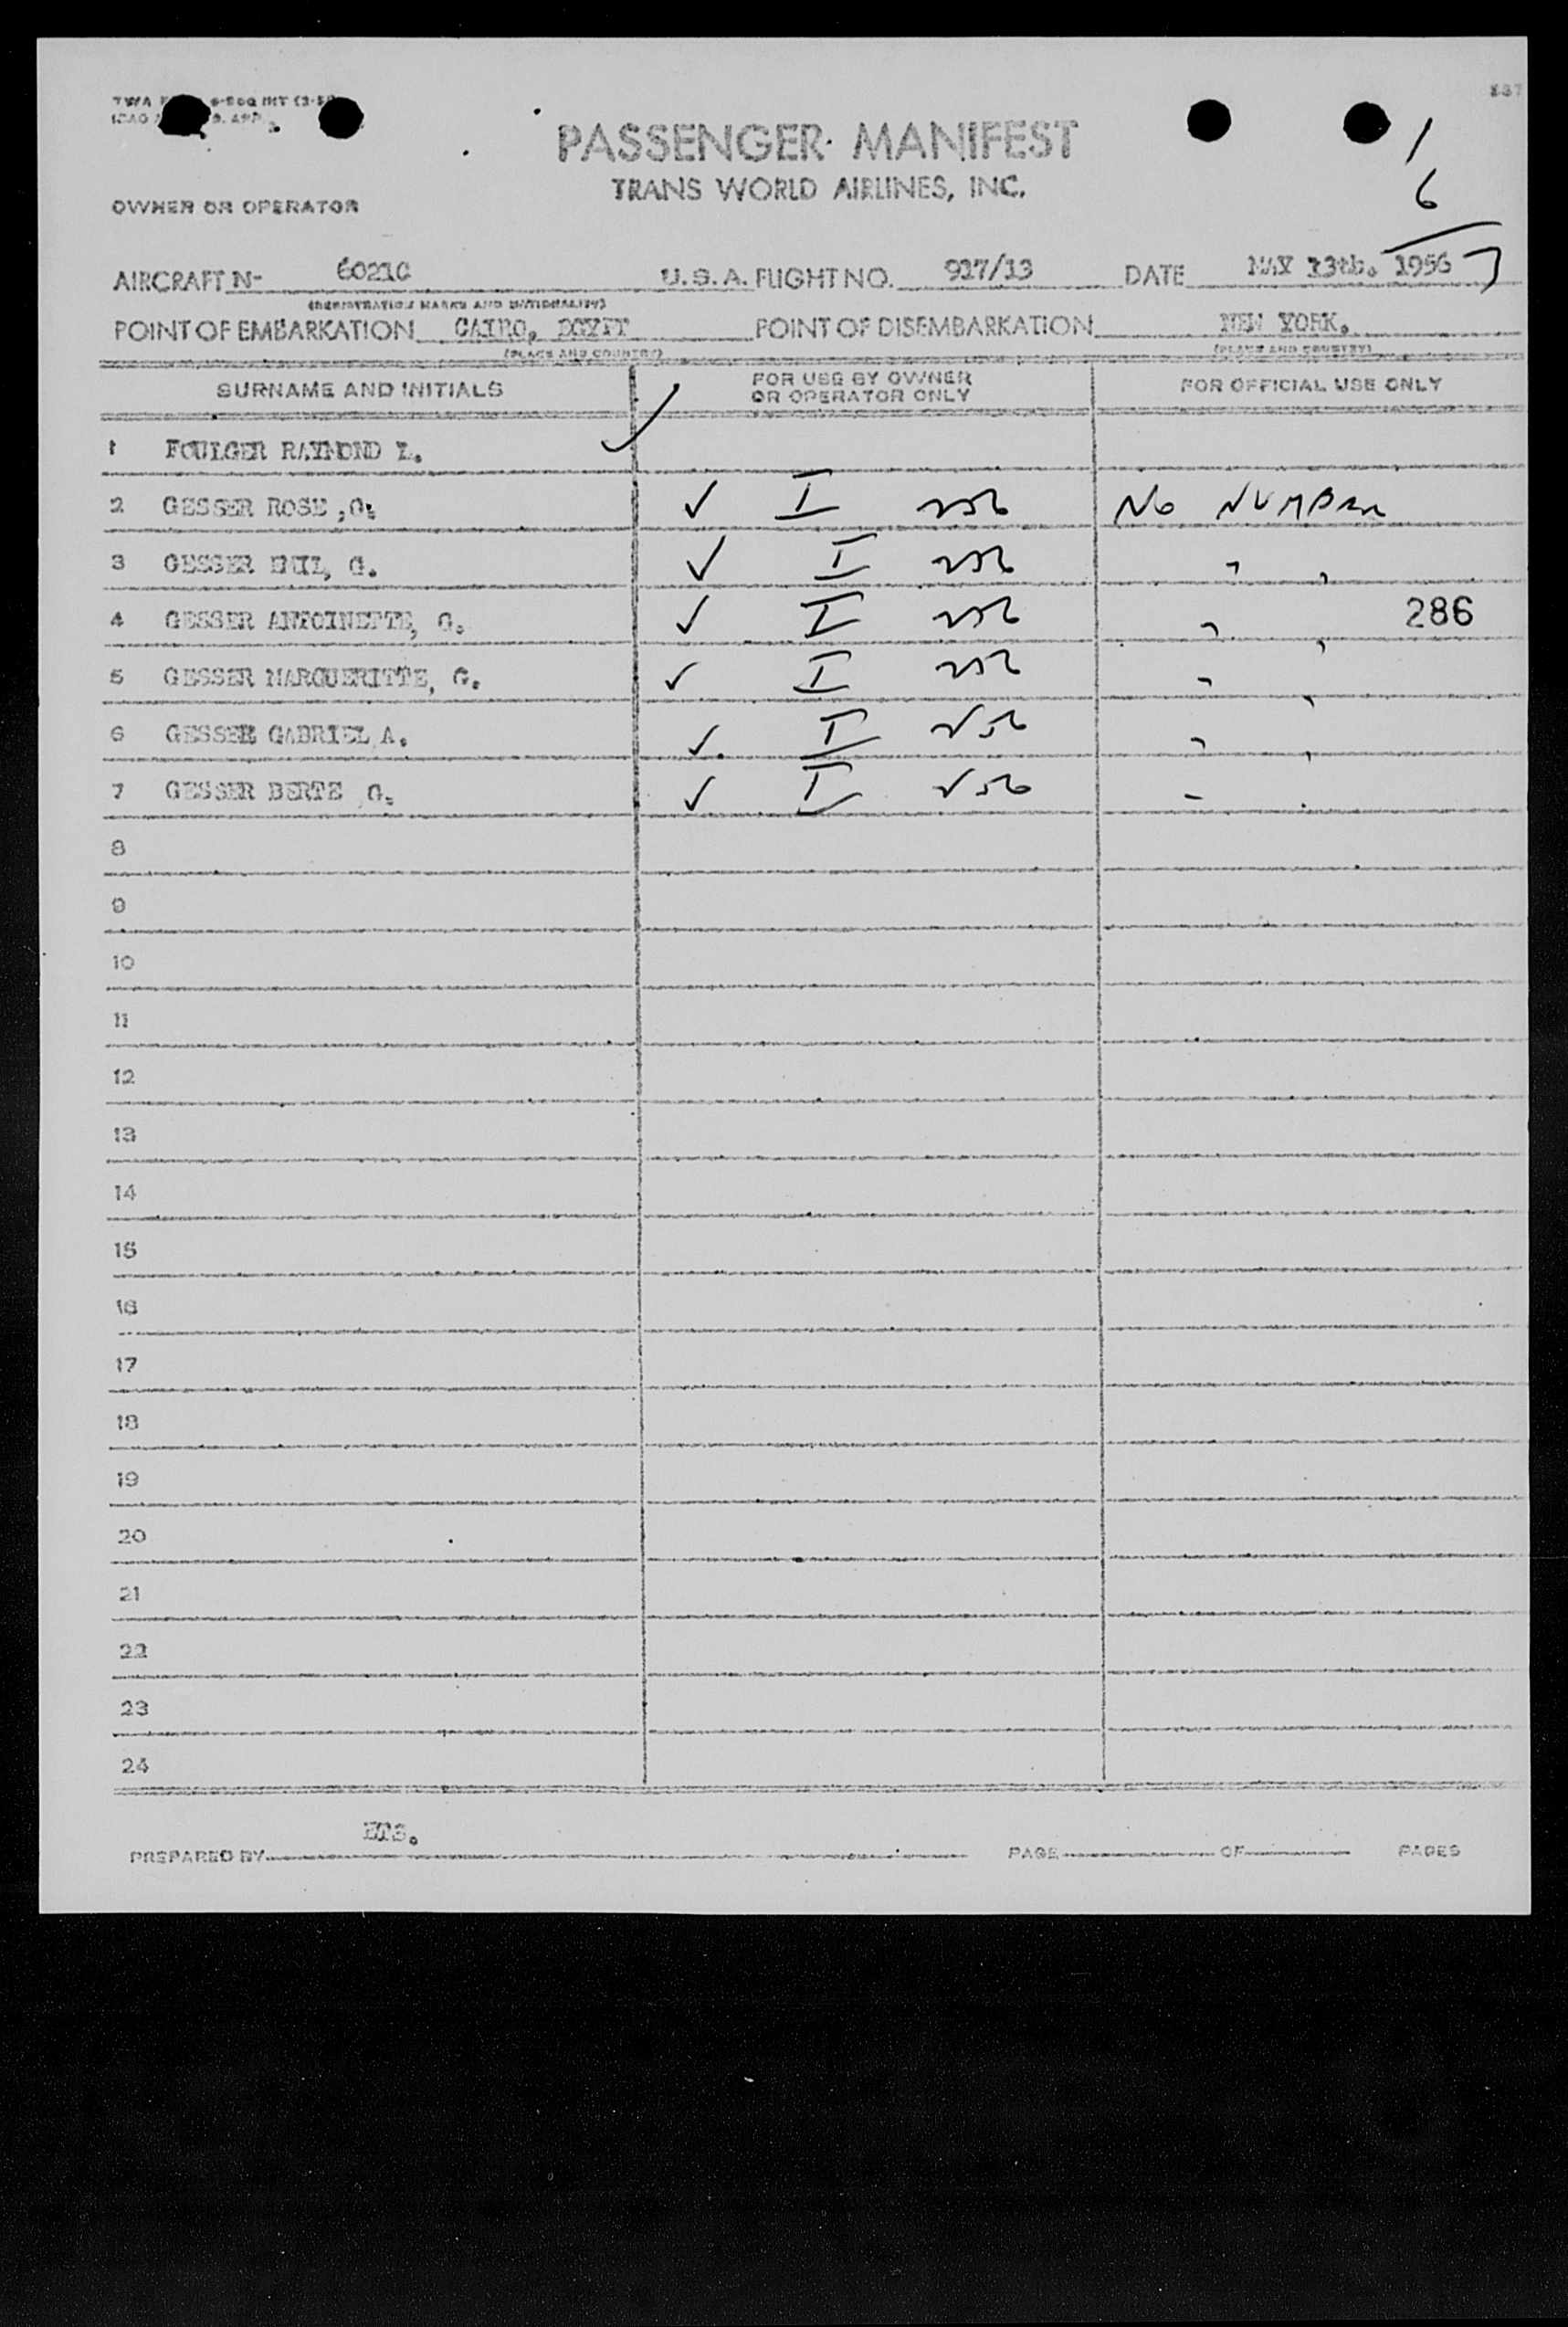 PASSENGER MANIFEST
TRANS WORLD AIRLINES, INC.
1
6
7
OWNER OR OPERATOR
AIRCRAFT N- 6021C U.S.A. FLIGHT NO. 927/13 DATE MAY 13th. 1956
(REGISTRATION MARKS AND NATIONALITY)
POINT OF EMBARKATION CAIRO, EGYPT POINT OF DISEMBARKATION NEW YORK.
(PLACE AND COUNTRY) (PLACE AND COUNTRY)
SURNAME AND INITIALS FOR USE BY OWNER OR OPERATOR ONLY FOR OFFICIAL USE ONLY
1 FOULGER RAYMOND L. ✓
2 GESSER ROSE ,G. ✓ I No NUMBER
3 GESSER EMIL, G. ✓ I " "
4 GESSER ANTOINETTE, G. ✓ I " " 286
5 GESSER MARGUERITTE, G. ✓ I " "
6 GESSER GABRIEL A. ✓ I " "
7 GESSER BERTE G. ✓ I " "
8
9
10
11
12
13
14
15
16
17
18
19
20
21
22
23
24
PREPARED BY PAGE OF PAGES